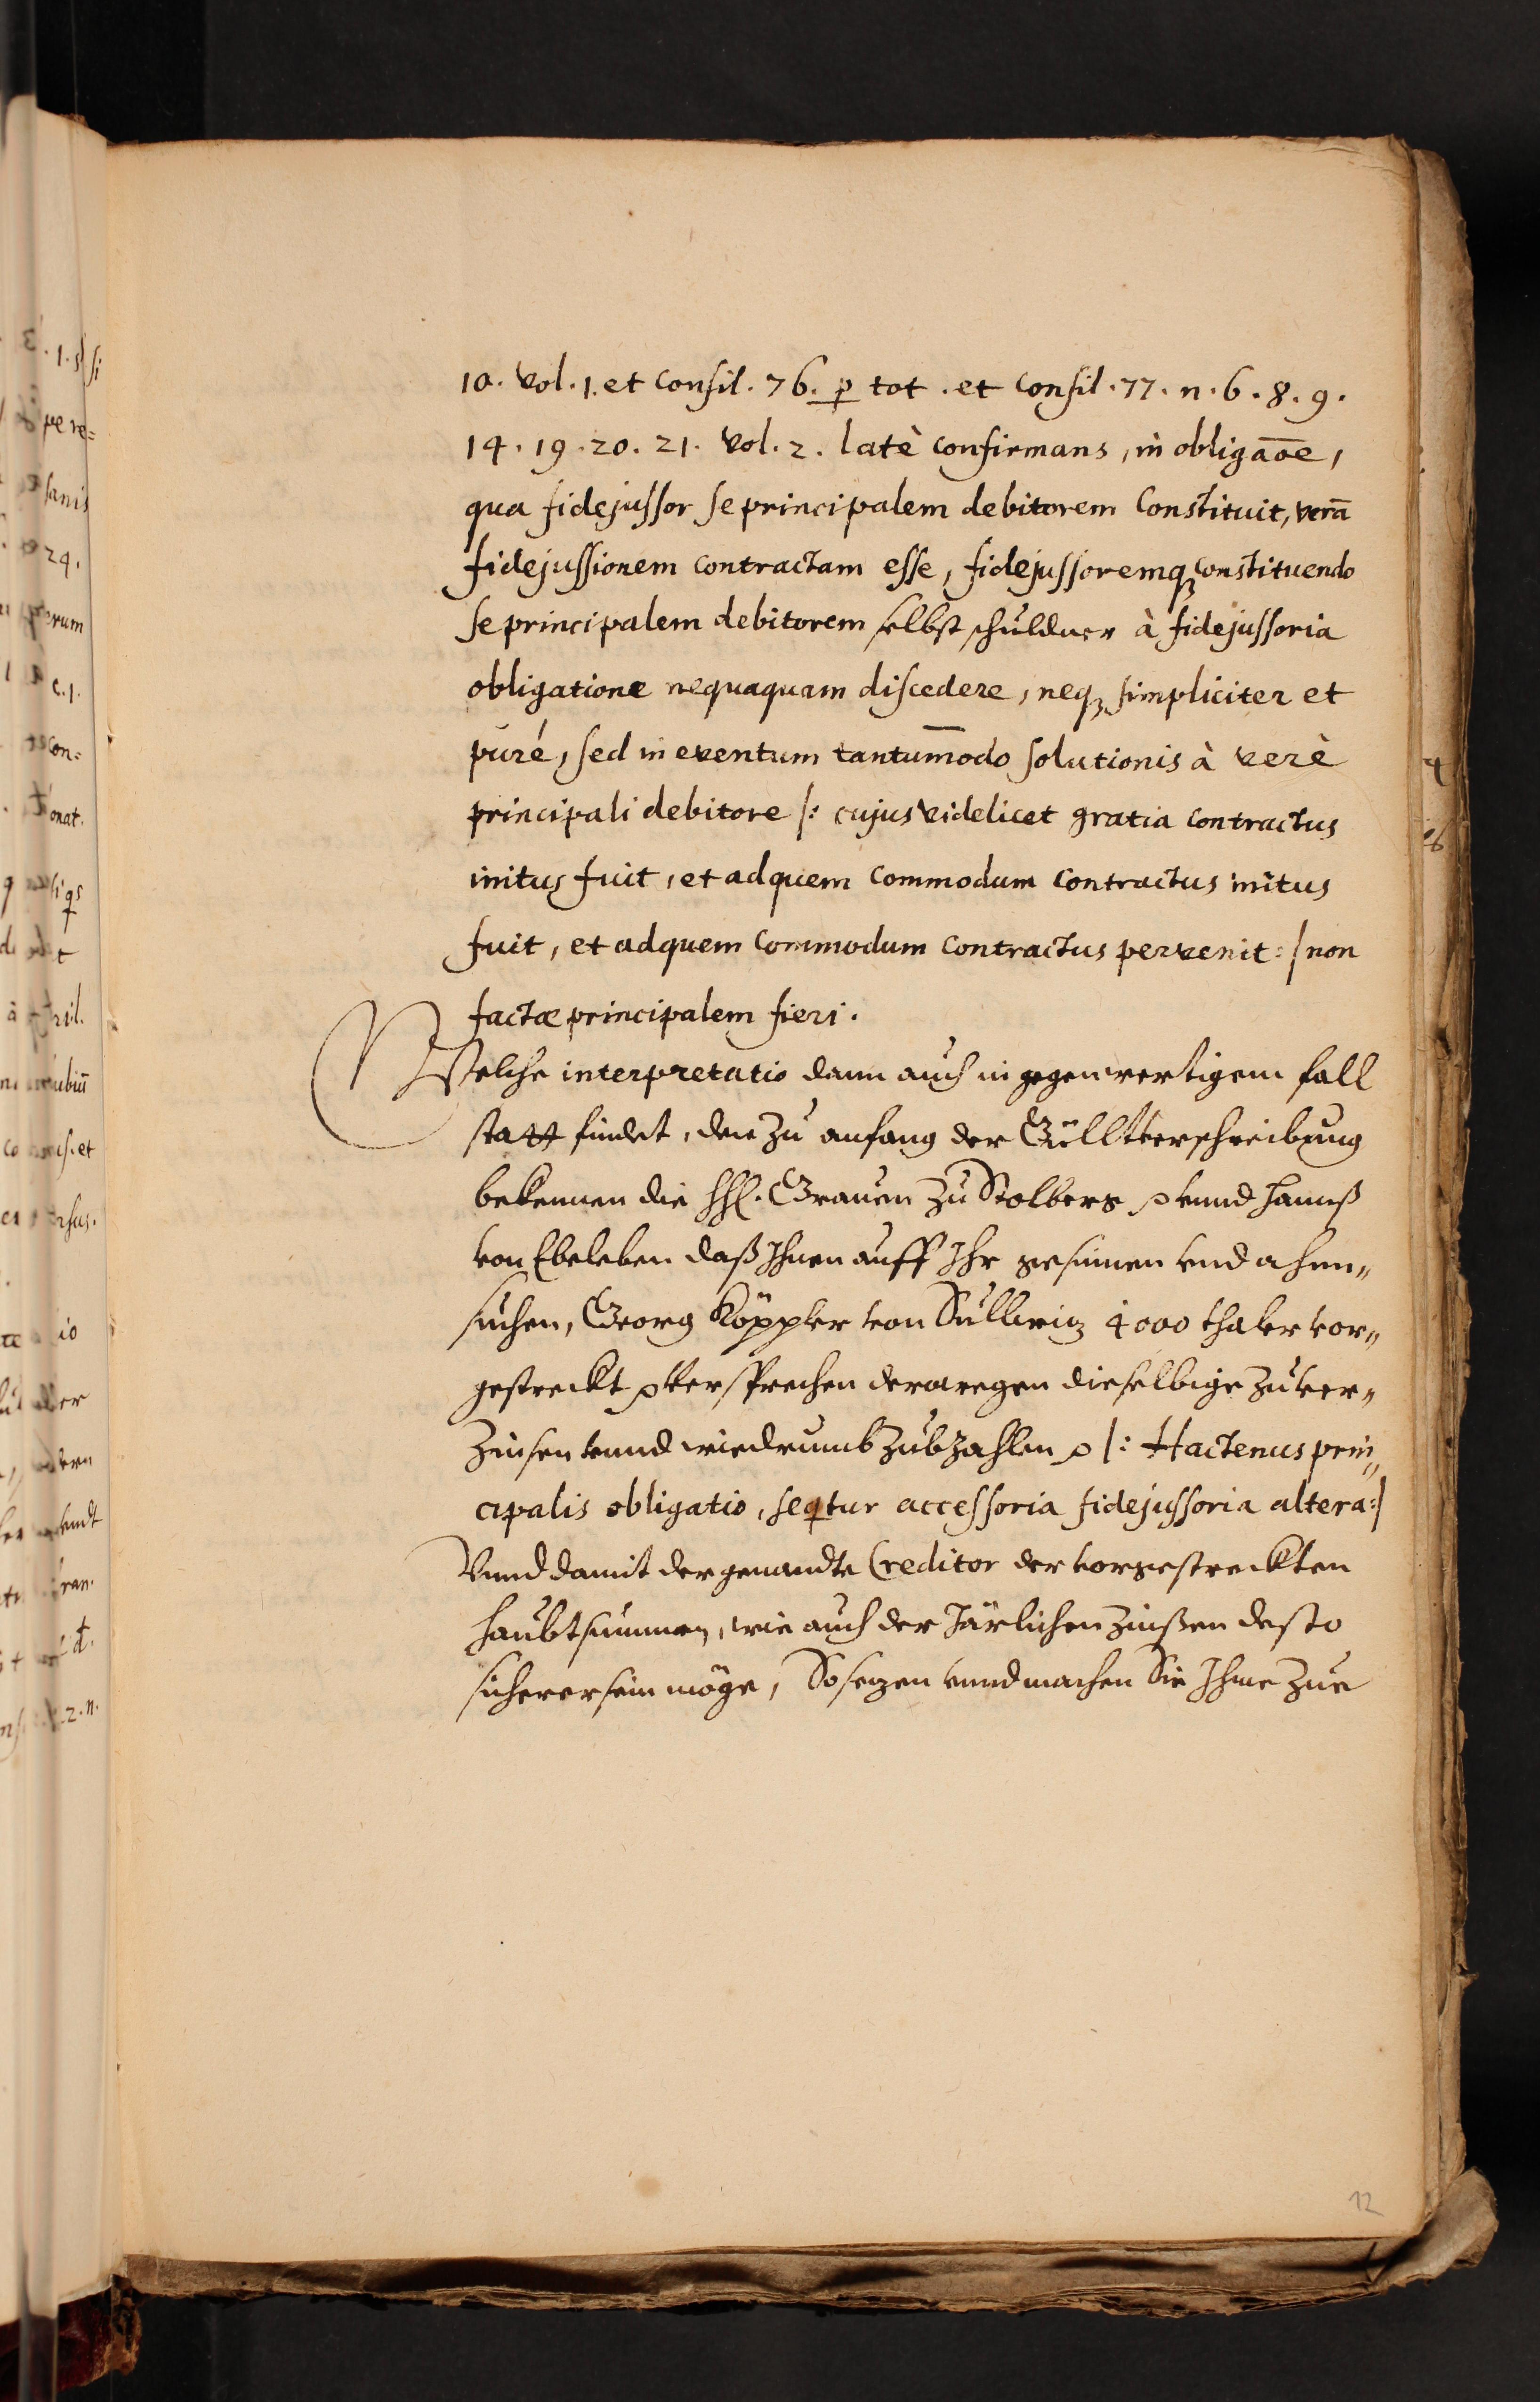 10. vol. 1. et Consil. 76. p tot. et Consil. 77. n. 6. 8. 9.
14. 19. 20. 21. vol. 2. latè confirmans, in obligaōe,
qua fidejussor se principalem debitorem Constituit, verā
fidejussionem contractam esse, fidejussoremq₃ constituendo
se principalem debitorem selbst schuldner à fidejussoria
obligatione nequaquam discedere, neq₃ simpliciter et
puré, sed in eventum tantum̄odo solutionis à verè
principali debitore /: cujus videlicet gratia contractus
initus fuit, et ad quem commodum contractus initus
fuit, et ad quem commodum contractus pervenit :/ non
factæ principalem fieri.
Welche interpretatio dann auch in gegenwertigem fall
statt findet, den zu anfang der Gülltverschreibung
bekennen die hh. Grauen zu Stolberg vnnd Hannß
von Ebeleben daß Ihnen auff Ihr gesinnen vnd ahnn„
suchen, Georg Köppler von 4000 thaler vor„
gestreckt versprechen derwegen dieselbige zu ver„
zinsen vnnd wiedrumb zubzahlen /: Hactenus prin„
cipalis obligatio, seqtur accessoria fidejussoria altera :/
Vnnd damit der genandte Creditor der vorgestreckten
haubtsummen, wie auch der Järlichen zinßen desto
sicherer sein möge, So sezen vnnd machen Sie Ihme zue
12